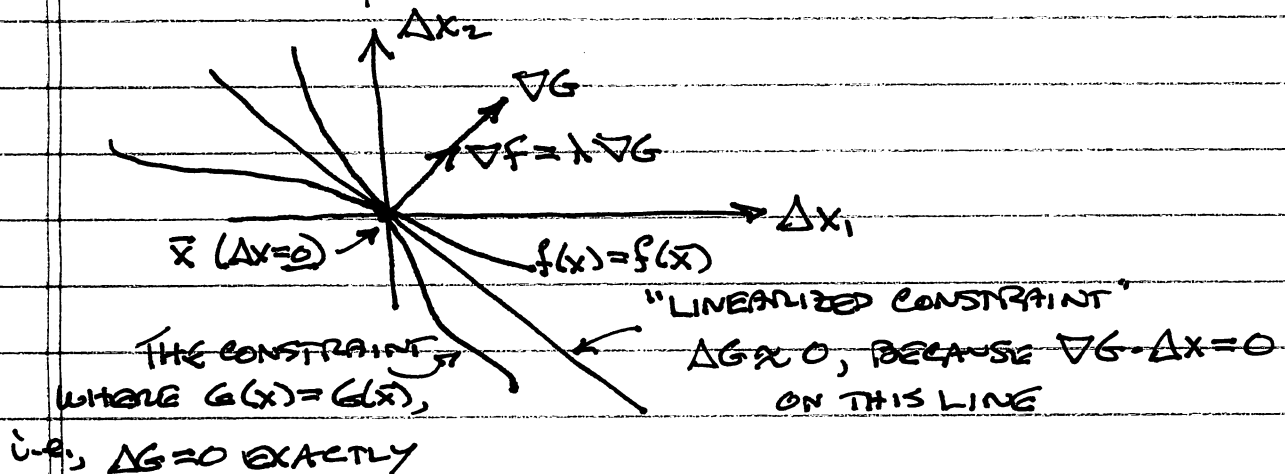 Δx₂
∇G
∇f = λ∇G
Δx₁
x̄ (Δx=0)
f(x)=f(x̄)
"LINEARIZED CONSTRAINT"
ΔG≈0, BECAUSE ∇G·Δx=0
ON THIS LINE
THE CONSTRAINT
WHERE G(x)=G(x̄),
i.e., ΔG=0 EXACTLY